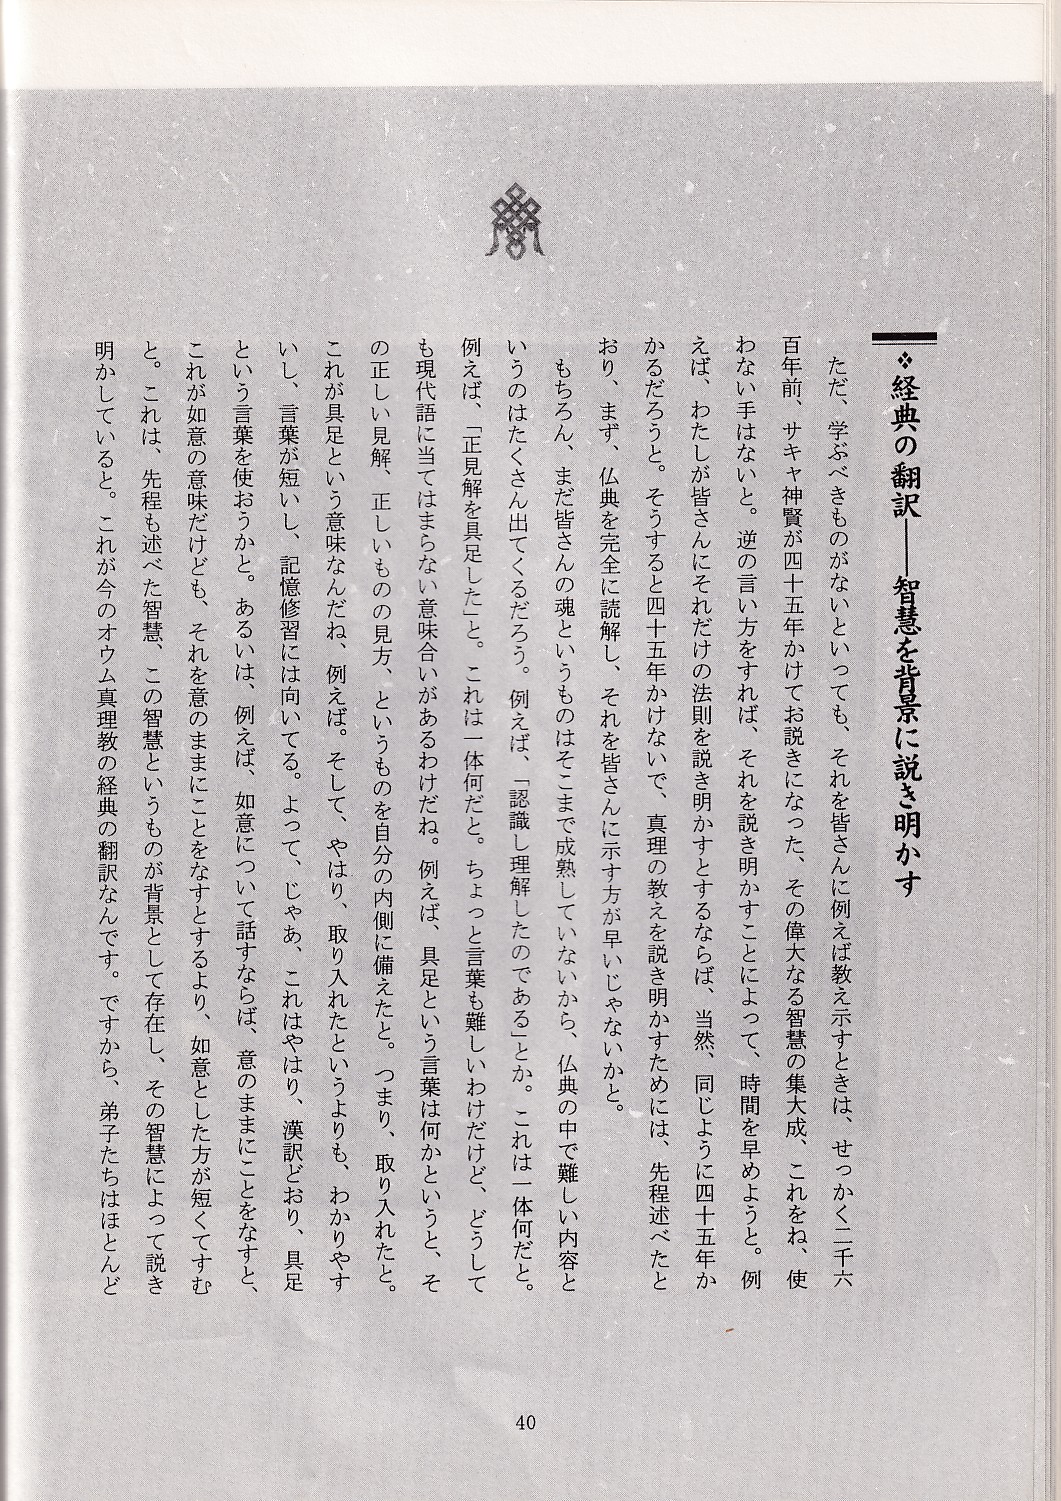 ❖経典の翻訳――智慧を背景に説き明かす
ただ、学ぶべきものがないといっても、それを皆さんに例えば教え示すときは、せっかく二千六
百年前、サキャ神賢が四十五年かけてお説きになった、その偉大なる智慧の集大成、これをね、使
わない手はないと。逆の言い方をすれば、それを説き明かすことによって、時間を早めようと。例
えば、わたしが皆さんにそれだけの法則を説き明かすとするならば、当然、同じように四十五年か
かるだろうと。そうすると四十五年かけないで、真理の教えを説き明かすためには、先程述べたと
おり、まず、仏典を完全に読解し、それを皆さんに示す方が早いじゃないかと。
もちろん、まだ皆さんの魂というものはそこまで成熟していないから、仏典の中で難しい内容と
いうのはたくさん出てくるだろう。例えば、「認識し理解したのである」とか。これは一体何だと。
例えば、「正見解を具足した」と。これは一体何だと。ちょっと言葉も難しいわけだけど、どうして
も現代語に当てはまらない意味合いがあるわけだね。例えば、具足という言葉は何かというと、そ
の正しい見解、正しいものの見方、というものを自分の内側に備えたと。つまり、取り入れたと。
これが具足という意味なんだね、例えば。そして、やはり、取り入れたというよりも、わかりやす
いし、言葉が短いし、記憶修習には向いてる。よって、じゃあ、これはやはり、漢訳どおり、具足
という言葉を使おうかと。あるいは、例えば、如意について話すならば、意のままにことをなすと、
これが如意の意味だけども、それを意のままにことをなすとするより、如意とした方が短くてすむ
と。これは、先程も述べた智慧、この智慧というものが背景として存在し、その智慧によって説き
明かしていると。これが今のオウム真理教の経典の翻訳なんです。ですから、弟子たちはほとんど
40